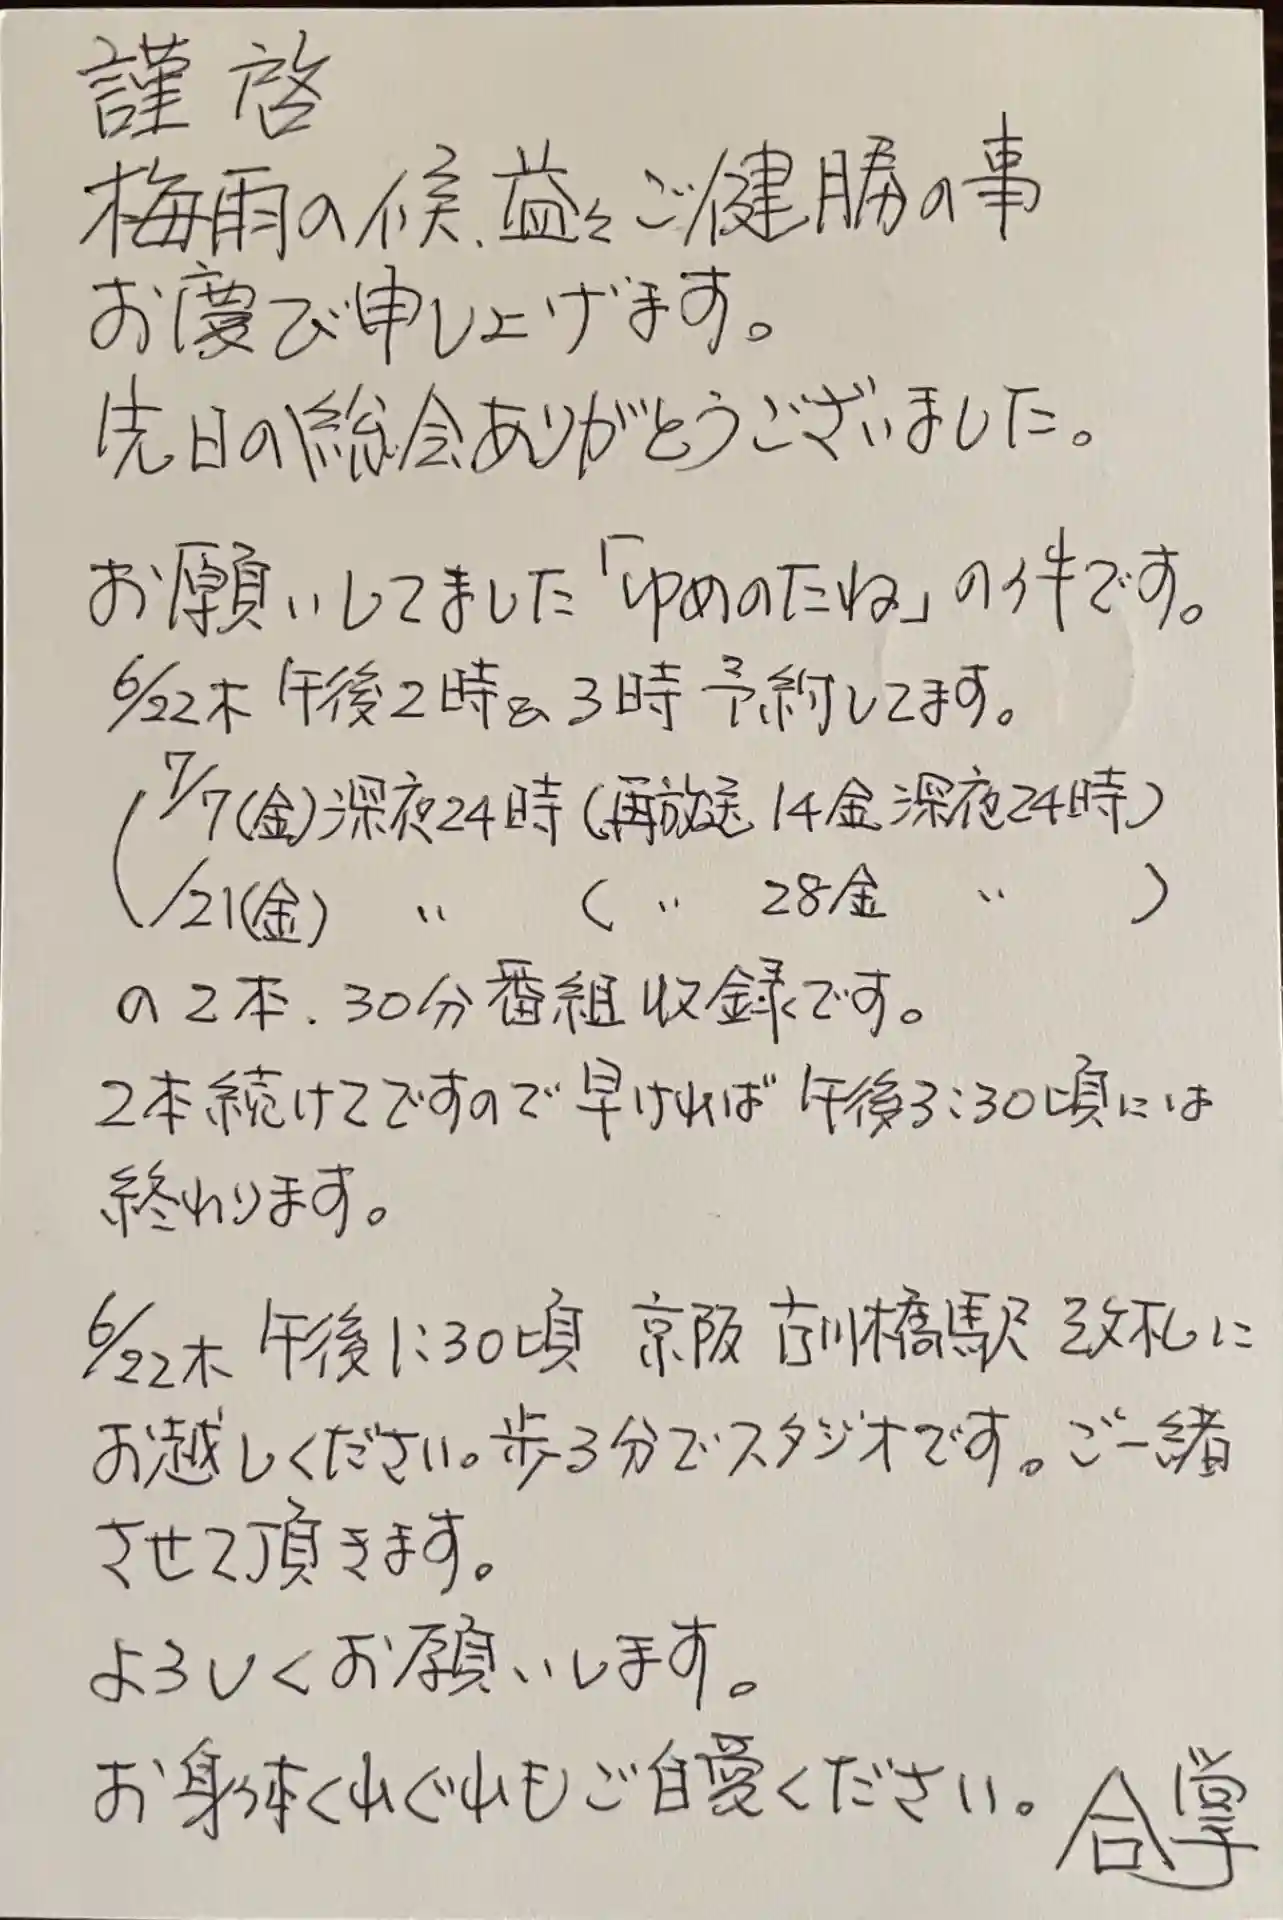 謹啓
梅雨の候、益々ご健勝の事
お慶び申し上げます。
先日の総会ありがとうございました。
お願いしてました「ゆめのたね」の件です。
6/22木 午後2時&3時 予約してます。
7/7(金)深夜24時(再放送 14金 深夜24時)
/21(金) 〃 ( 〃 28金 〃 )
の2本、30分番組収録です。
2本続けてですので早ければ 午後3:30頃には
終わります。
6/22木 午後1:30頃 京阪 古川橋駅 改札に
お越しください。歩3分でスタジオです。ご一緒
させて頂きます。
よろしくお願いします。
お身体くれぐれもご自愛ください。
合掌